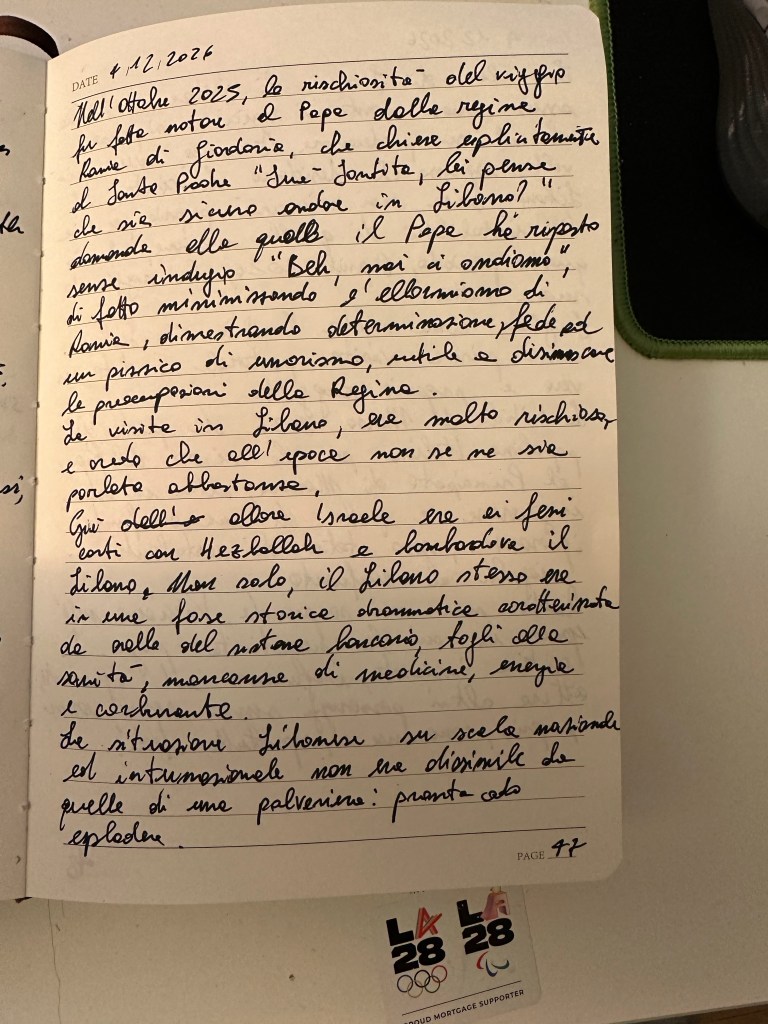 DATE 4,12,2026
Nell'Ottobre 2025, la rischiosità del viaggio
fu fatta notare al Papa dalla regina
Rania di Giordania, che chiese esplicitamente
al Santo Padre "Sua Santità, lei pensa
che sia sicuro andare in Libano?"
domanda alla quale il Papa ha risposto
senza indugio "Beh, noi ci andiamo",
di fatto minimizzando l'allarmismo di
Rania, dimostrando determinazione, fede ed
un pizzico di umorismo, utile a disinnescare
le preoccupazioni della Regina.
La visita in Libano, era molto rischiosa,
e credo che all'epoca non se ne sia
parlato abbastanza.
Già allora Israele era ai ferri
corti con Hezbollah e bombardava il
Libano. Non solo, il Libano stesso era
in una fase storica drammatica caratterizzata
da crollo del sistema bancario, tagli alla
sanità, mancanza di medicine, energia
e carburante.
La situazione Libanese su scala nazionale
ed internazionale non era dissimile da
quella di una polveriera: pronta ad
esplodere.
PAGE 47
LA LA
28 28
PROUD MORTGAGE SUPPORTER